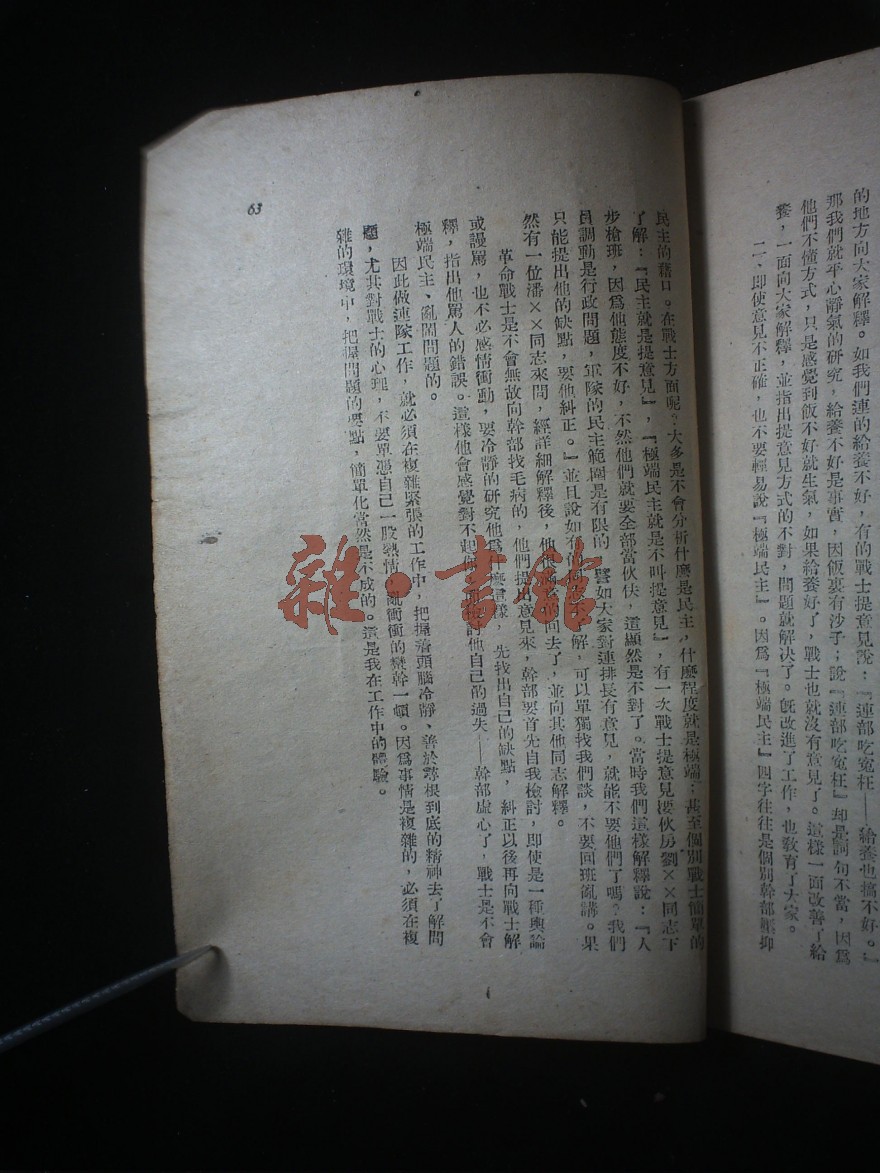 的地方向大家解釋。如我們連的給養不好，有的戰士提意見說：『連部吃冤枉——給養也搞不好。』
那我們就平心靜氣的研究，給養不好是事實，因飯裏有沙子；說『連部吃冤枉』却是詞句不當，因爲
他們不懂方式，只是感覺到飯不好就生氣，如果給養好了，戰士也就沒有意見了。這樣一面改善了給
養，一面向大家解釋，並指出提意見方式的不對，問題就解決了。旣改進了工作，也敎育了大家。
二、即使意見不正確，也不要輕易說『極端民主』。因爲『極端民主』四字往往是個別幹部壓抑
民主的藉口。在戰士方面呢？大多是不會分析什麽是民主，什麽程度就是極端；甚至個別戰士簡單的
了解：『民主就是提意見』，『極端民主就是不叫提意見』，有一次戰士提意見要伙房劉××同志下
步槍班，因爲他態度不好，不然他們就要全部當伙伕，這顯然是不對了。當時我們這樣解釋說：『人
員調動是行政問題，軍隊的民主範圍是有限的，譬如大家對連排長有意見，就能不要他們了嗎？我們
只能提出他的缺點，要他糾正。』並且說如有 解，可以單獨找我們談，不要回班亂講。果
然有一位潘××同志來問，經詳細解釋後，他很 的回去了，並向其他同志解釋。
革命戰士是不會無故向幹部找毛病的，他們提出意見來，幹部要首先自我檢討，即使是一種輿論
或謾罵，也不必感情衝動，要冷靜的硏究他爲 麽這樣，先找出自己的缺點，糾正以後再向戰士解
釋，指出他罵人的錯誤。這樣他會感覺對不起 檢討他自己的過失——幹部虛心了，戰士是不會
極端民主、亂鬧問題的。
因此做連隊工作，就必須在複雜緊張的工作中，把握着頭腦冷靜、善於尋根到底的精神去了解問
題，尤其對戰士的心理，不要單憑自己一股熱情 亂衝衝的蠻幹一頓。因爲事情是複雜的，必須在複
雜的環境中，把握問題的要點，簡單化當然是不成的。這是我在工作中的體驗。
63
雜·書館